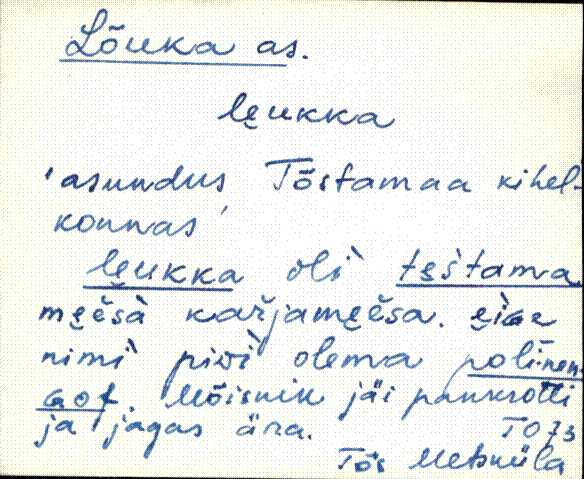 Lõuka as.
lęukka
'asundus Tõstamaa kihel-
konnas'
lęukka oli tęštama
męėsà karjamęėsa. ęiGe
nimì pivì olema polìnen-
Gof. Mõisnik jäi pankrotti
ja jagas ära. TO 73
Tõs Metsküla